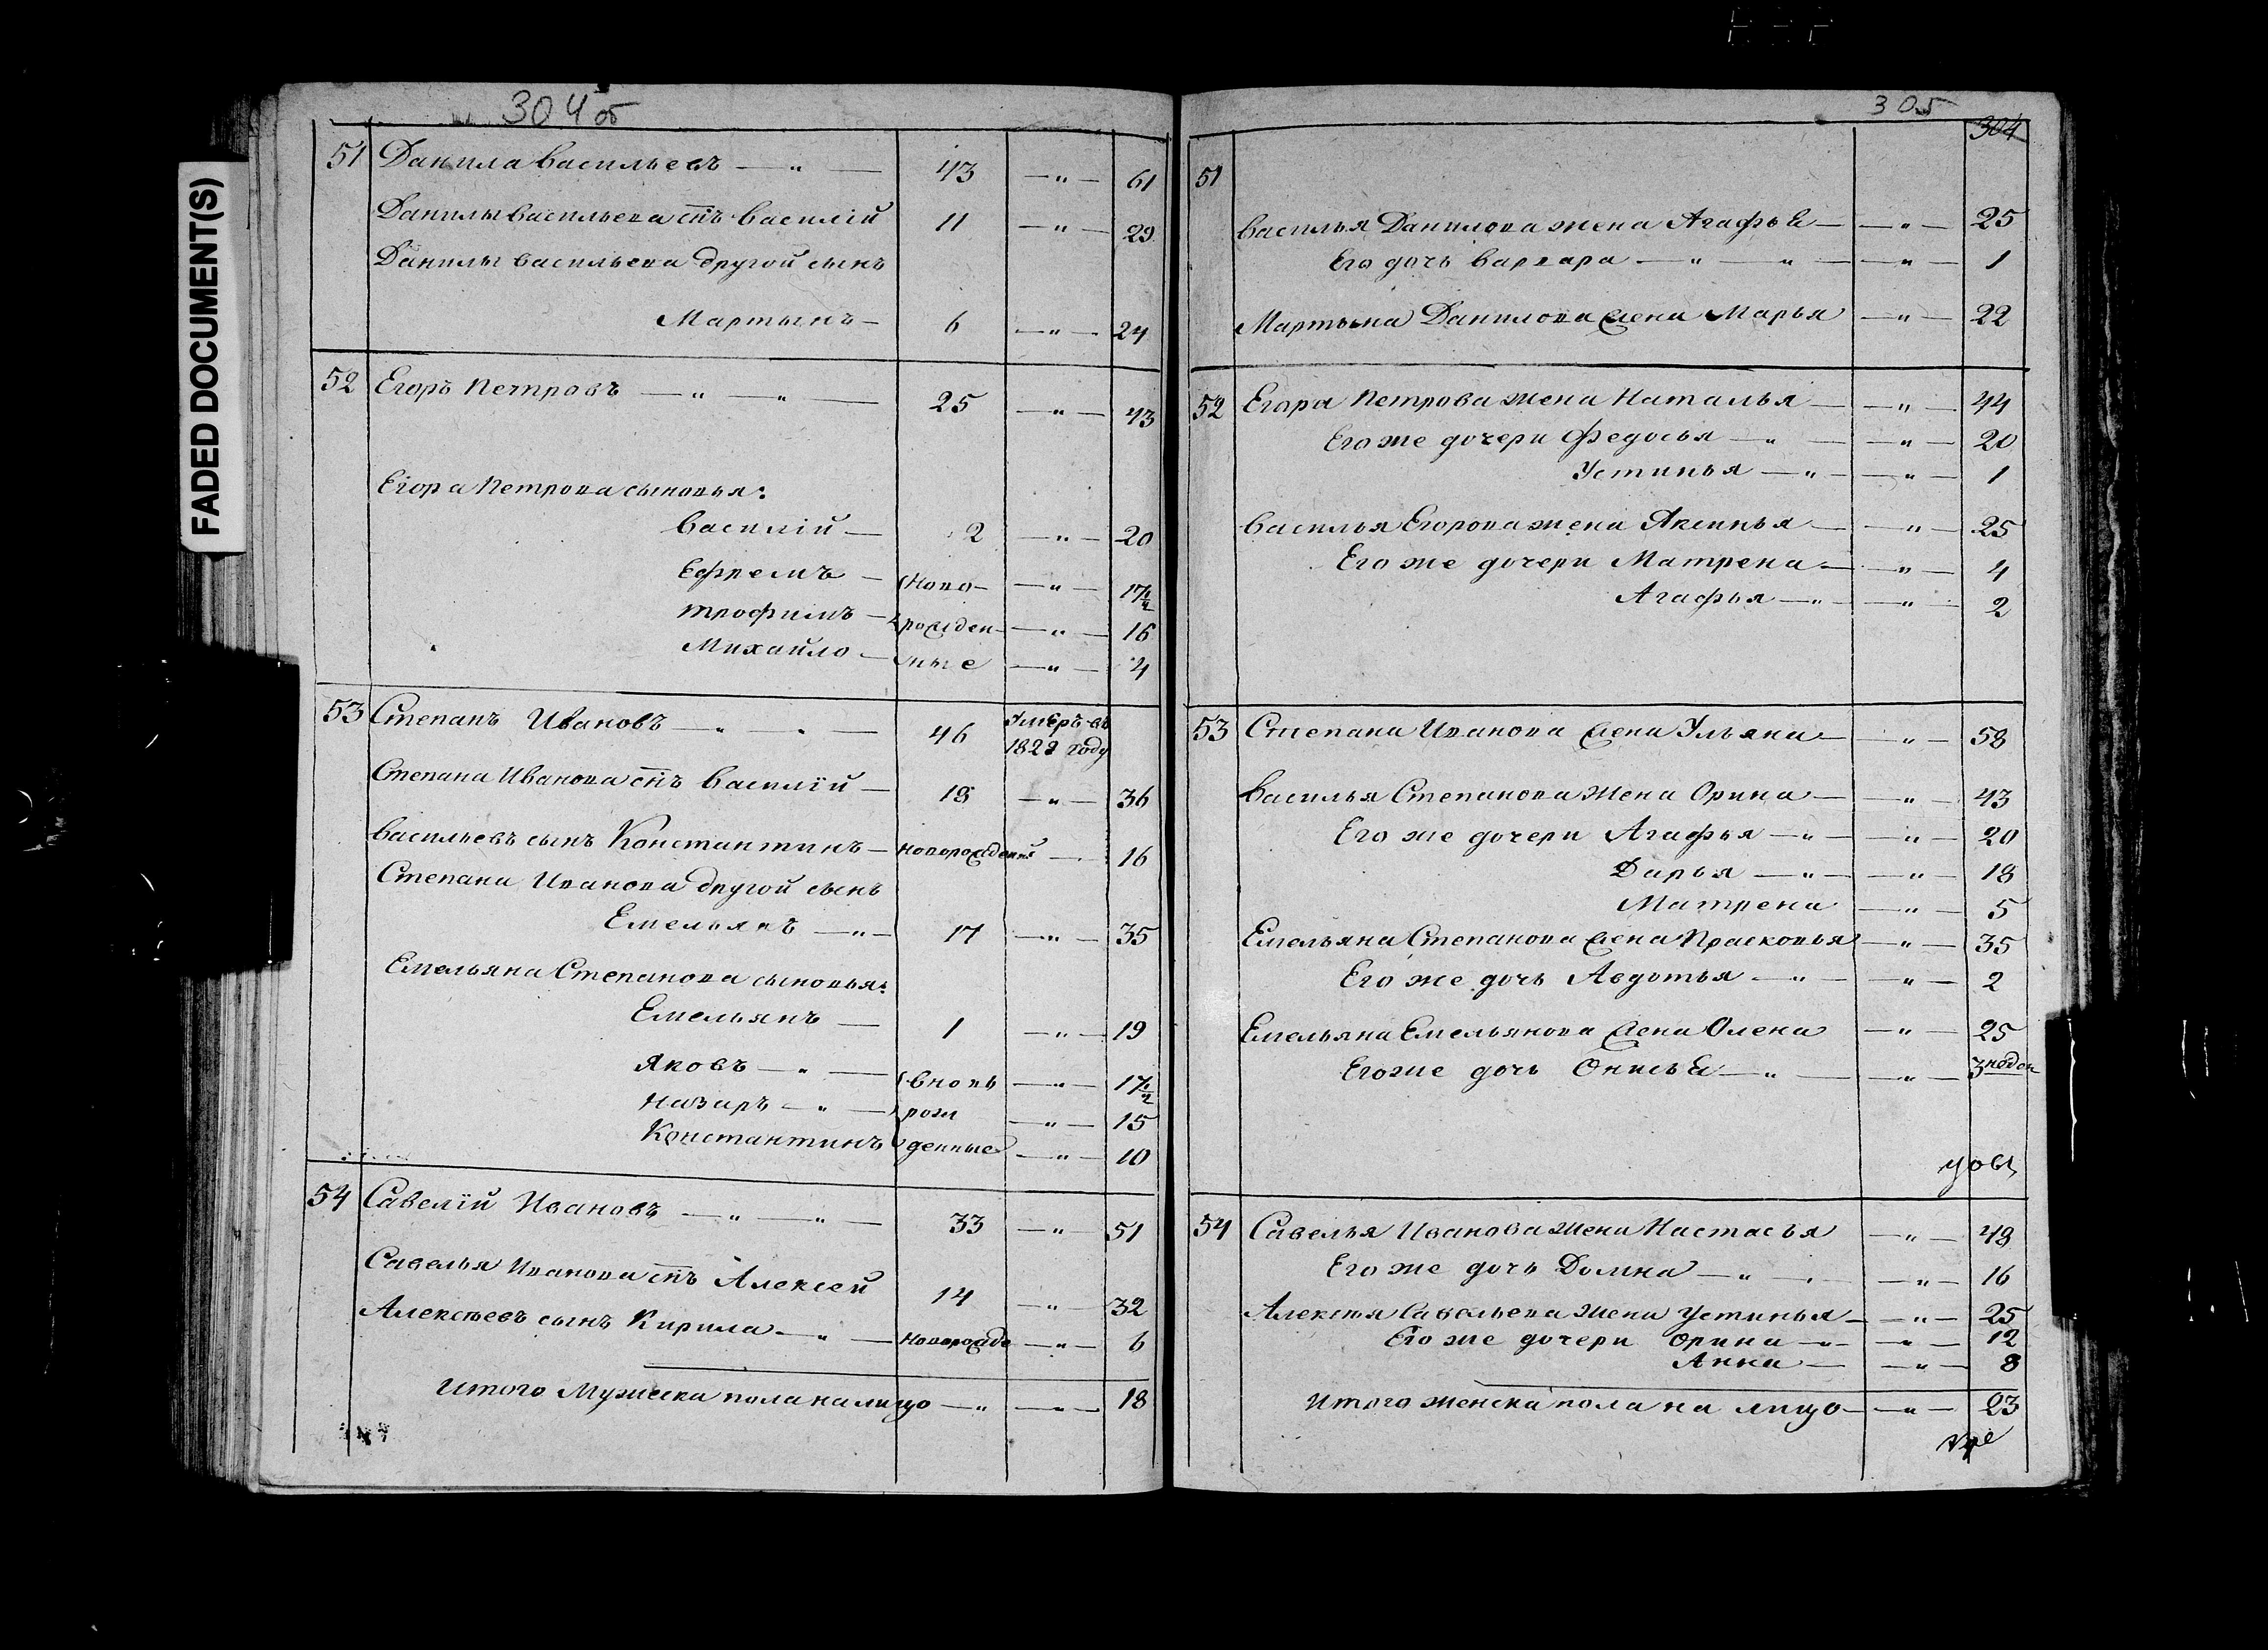 FADED DOCUMENT(S)
304 об
51 Данила Васильевъ — " — 43 — " — 61
Данилы Васильева снъ Василiй 11 — " — 29
Данилы Васильева другой сынъ
Мартынъ — 6 — " — 24
52 Егоръ Петровъ — " — " — 25 — " — 43
Егора Петрова сыновья:
Василiй — 2 — " — 20
Ефремъ — Ново- — " — 17½
Трофимъ — рожден- — " — 16
Михайло — ные — " — 4
53 Степанъ Ивановъ — " — " — 46 Умеръ въ
1828 году
Степана Иванова снъ Василiй — 18 — " — 36
Васильевъ сынъ Константинъ — новорожденный — 16
Степана Иванова другой сынъ
Емельянъ — " — 17 — " — 35
Емельяна Степанова сыновья:
Емельянъ — 1 — " — 19
Яковъ — " — вновь — " — 17½
Назаръ — " — рож — " — 15
Константинъ денные — " — 10
54 Савелiй Ивановъ — " — " — 33 — " — 51
Савелья Иванова снъ Алексей 14 — " — 32
Алексѣевъ сынъ Кирила — " — новорожде — " — 6
Итого Мужеска пола на лицо — " — " — 18
305
304
51
Василья Данилова жена Агафья — " — 25
Его дочь Варвара — " — " — " — 1
Мартына Данилова жена Марья — " — 22
52 Егора Петрова жена Наталья — " — 44
Его же дочери Федосья — " — " — 20
Устинья — " — " — 1
Василья Егорова жена Аксинья — " — 25
Его же дочери Матрена — " — 4
Агафья — " — " — 2
53 Степана Иванова жена Ульяна — " — 58
Василья Степанова жена Орина — " — 43
Его же дочери Агафья — " — " — 20
Дарья — " — " — 18
Матрена — " — 5
Емельяна Степанова жена Прасковья — " — 35
Его же дочь Авдотья — " — " — 2
Емельяна Емельянова жена Олена — " — 25
Его же дочь Онисья — " — " — 3 недел
54 Савелья Иванова жена Настасья — " — 48
Его же дочь Домна — " — " — 16
Алексѣя Савельева жена Устинья — " — 25
Его же дочери Орина — " — " — 12
Анна — " — 8
Итого женска пола на лицо — " — 23